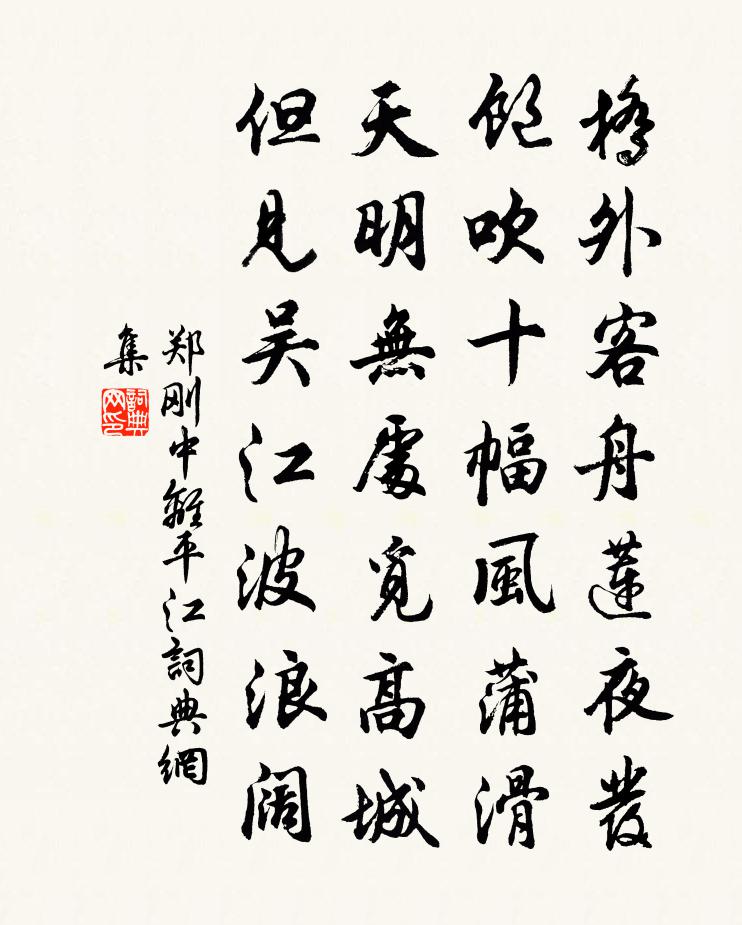 橋外客舟蓮夜發
飽吹十幅風蒲滑
天明無處覓高城
但見吴江波浪闊
郑刚中離平江詞典網
集
詞典
网印